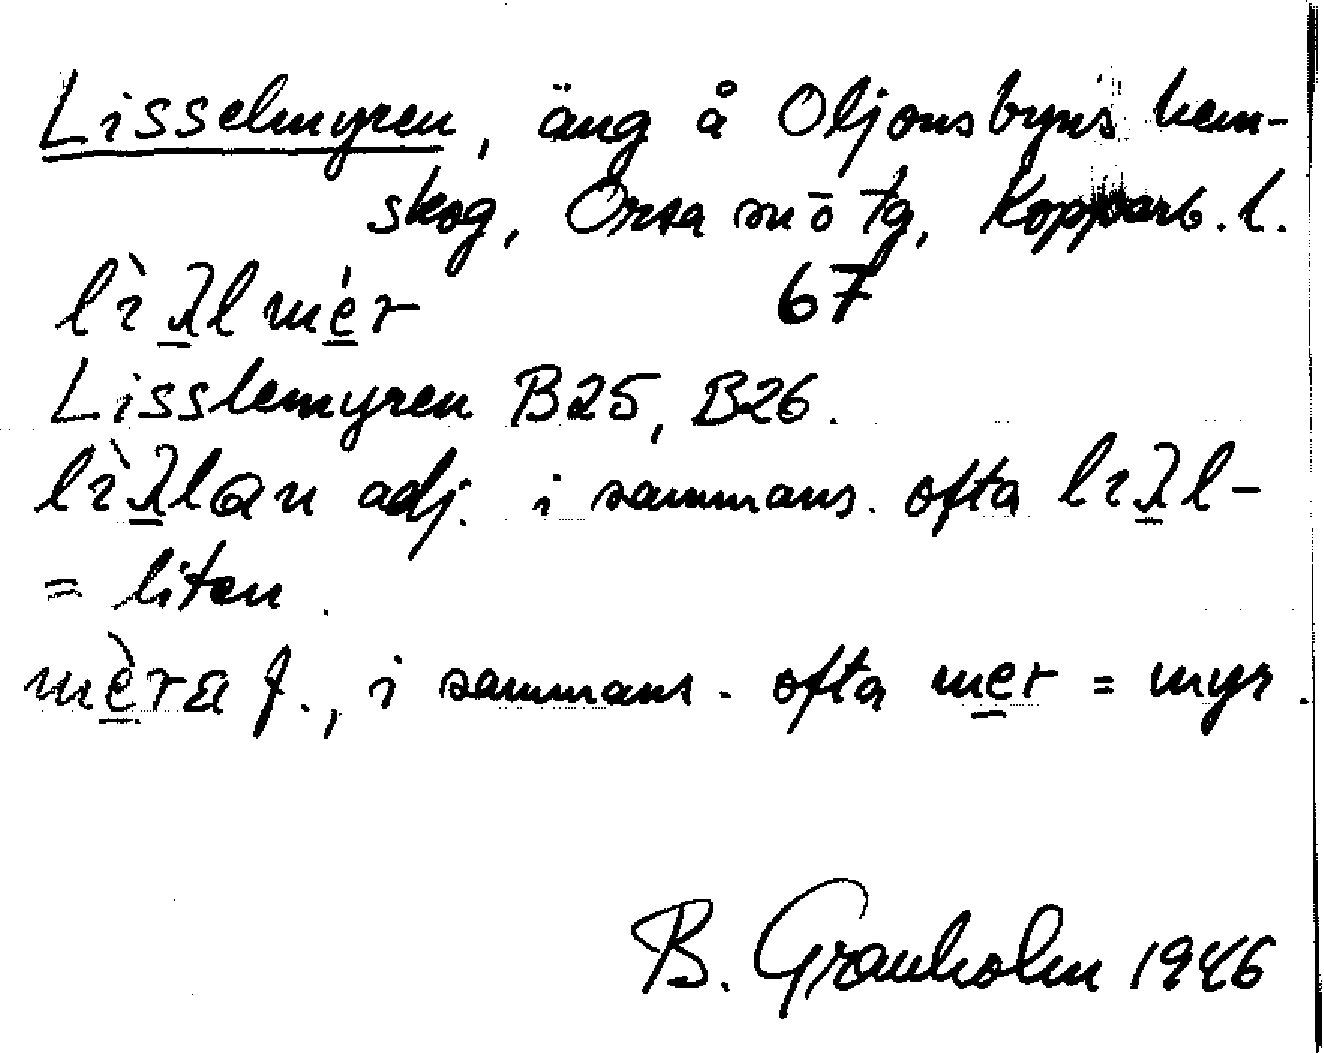 Lisselmyren, äng å Oljonsbyns hem-
skog, Orsa sn o tg, Kopparb. l.
lìƛ̱lmé̱r 67
Lisslemyren B25, B26.
lìƛ̱lan adj. i sammans. ofta lıƛ̱l-
= liten.
mè̱ra f., i sammans. ofta me̱r = myr.
B. Granholm 1946